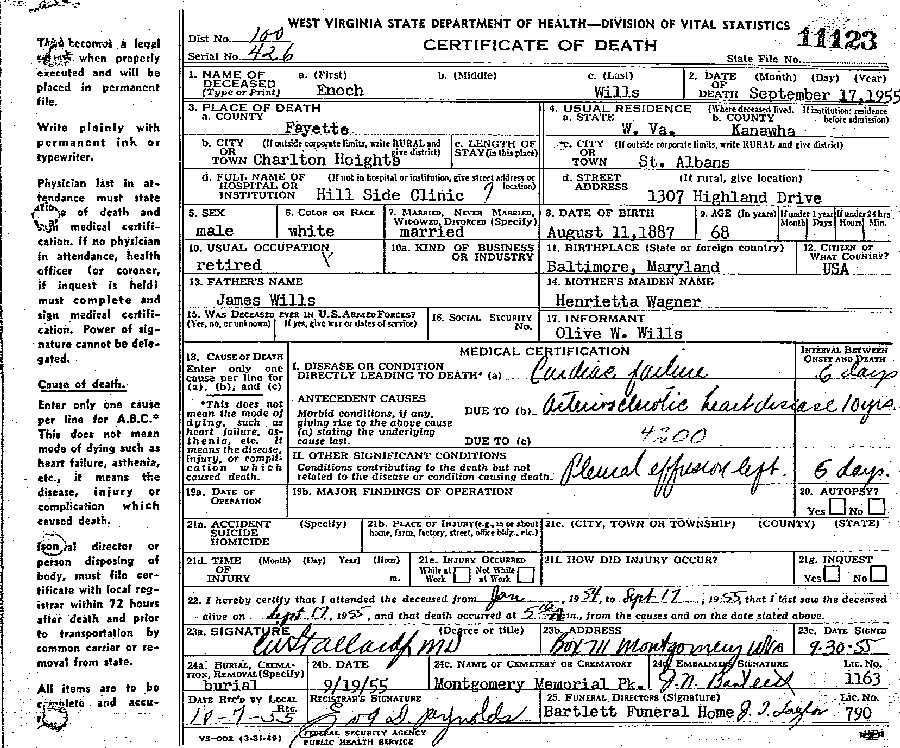 WEST VIRGINIA STATE DEPARTMENT OF HEALTH—DIVISION OF VITAL STATISTICS
Dist No. 100
CERTIFICATE OF DEATH
11123
Serial No. 426
State File No.
becomes a legal
when properly
executed and will be
placed in permanent
file.
Write plainly with
permanent ink or
typewriter.
Physician last in at-
tendance must state
of death and
sign medical certifi-
cation. If no physician
in attendance, health
officer (or coroner,
if inquest is held)
must complete and
sign medical certifi-
cation. Power of sig-
nature cannot be dele-
gated.
Cause of death.
Enter only one cause
per line for A.B.C.*
This does not mean
mode of dying such as
heart failure, asthenia,
etc., it means the
disease, injury or
complication which
caused death.
director or
person disposing of
body, must file cer-
tificate with local reg-
istrar within 72 hours
after death and prior
to transportation by
common carrier or re-
moval from state.
All items are to be
complete and accu-
1. NAME OF DECEASED (Type or Print)
a. (First) Enoch
b. (Middle)
c. (Last) Wills
2. DATE OF DEATH (Month) (Day) (Year) September 17, 1955
3. PLACE OF DEATH
a. COUNTY Fayette
4. USUAL RESIDENCE (Where deceased lived. If institution: residence before admission)
a. STATE W. Va.
b. COUNTY Kanawha
b. CITY OR TOWN (If outside corporate limits, write RURAL and give district) Charlton Heights
c. LENGTH OF STAY (in this place)
c. CITY OR TOWN (If outside corporate limits, write RURAL and give district) St. Albans
d. FULL NAME OF HOSPITAL OR INSTITUTION (If not in hospital or institution, give street address or location) Hill Side Clinic
d. STREET ADDRESS (If rural, give location) 1307 Highland Drive
5. SEX male
6. COLOR OR RACE white
7. MARRIED, NEVER MARRIED, WIDOWED, DIVORCED (Specify) married
8. DATE OF BIRTH August 11,1887
9. AGE (In years) 68
If under 1 year Month Days
If under 24 hrs Hours Min.
10. USUAL OCCUPATION retired
10a. KIND OF BUSINESS OR INDUSTRY
11. BIRTHPLACE (State or foreign country) Baltimore, Maryland
12. CITIZEN OF WHAT COUNTRY? USA
13. FATHER'S NAME James Wills
14. MOTHER'S MAIDEN NAME Henrietta Wagner
15. WAS DECEASED EVER IN U.S. ARMED FORCES? (Yes, no, or unknown) If yes, give war or dates of service)
16. SOCIAL SECURITY No.
17. INFORMANT Olive W. Wills
18. CAUSE OF DEATH
Enter only one cause per line for (a), (b), and (c)
*This does not mean the mode of dying, such as heart failure, asthenia, etc. It means the disease, injury, or complication which caused death.
MEDICAL CERTIFICATION
INTERVAL BETWEEN ONSET AND DEATH
I. DISEASE OR CONDITION DIRECTLY LEADING TO DEATH* (a) Cardiac failure 6 days
ANTECEDENT CAUSES
Morbid conditions, if any, giving rise to the above cause (a) stating the underlying cause last.
DUE TO (b) Arteriosclerotic heart disease 10 yrs.
DUE TO (c) 4200
II. OTHER SIGNIFICANT CONDITIONS
Conditions contributing to the death but not related to the disease or condition causing death.
Pleural effusion left. 5 days.
19a. DATE OF OPERATION
19b. MAJOR FINDINGS OF OPERATION
20. AUTOPSY? Yes No
21a. ACCIDENT SUICIDE HOMICIDE (Specify)
21b. PLACE OF INJURY (e.g., in or about home, farm, factory, street, office bldg., etc.)
21c. (CITY, TOWN OR TOWNSHIP) (COUNTY) (STATE)
21d. TIME OF INJURY (Month) (Day) (Year) (Hour) m.
21e. INJURY OCCURRED While at Work Not While at Work
21f. HOW DID INJURY OCCUR?
21g. INQUEST Yes No
22. I hereby certify that I attended the deceased from Jan 1954, to Sept 17, 1955, that I last saw the deceased
alive on Sept 17, 1955, and that death occurred at m., from the causes and on the date stated above.
23a. SIGNATURE (Degree or title) MD
23b. ADDRESS Box 111 Montgomery WVa
23c. DATE SIGNED 9-30-55
24a. BURIAL, CREMATION, REMOVAL (Specify) burial
24b. DATE 9/19/55
24c. NAME OF CEMETERY OR CREMATORY Montgomery Memorial Pk.
24d. EMBALMER'S SIGNATURE
LIC. NO. 1163
DATE REC'D BY LOCAL REG. 10-7-55
REGISTRAR'S SIGNATURE
25. FUNERAL DIRECTOR'S (Signature) Bartlett Funeral Home J. T. Taylor
LIC. NO. 790
VS-002 (3-31-49)
FEDERAL SECURITY AGENCY
PUBLIC HEALTH SERVICE